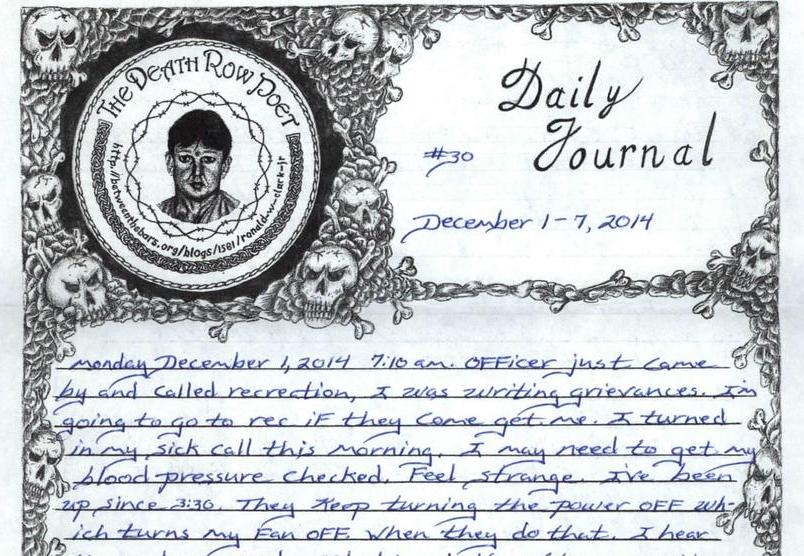 THE DEATH ROW POET
http://betweenthebars.org/blogs/1581/ronald-w-clark-jr
Daily
Journal
#30
December 1-7, 2014
monday December 1, 2014 7:10 am. OFFicer just came
by and called recreation, I was writing grievances. I'm
going to go to rec iF they come get me. I turned
in my sick call this morning. I may need to get my
blood pressure checked. Feel strange. I've been
up since 3:30. They Keep turning the power OFF wh-
ich turns my Fan OFF when they do that. I hear